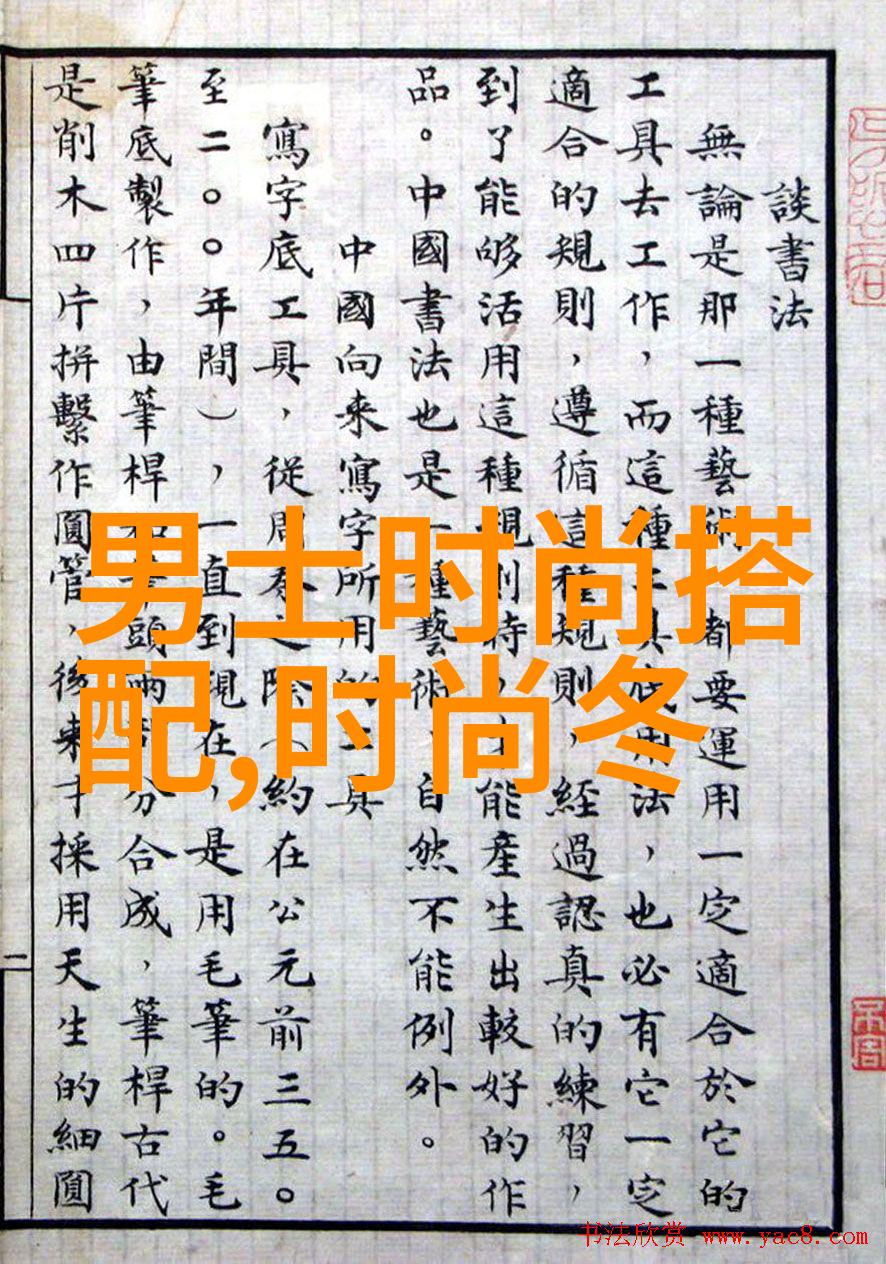 談書法
無論是那一種藝術，都要運用一定適合於它的
工具去工作，而這種工具底用法，也必有它一定
適合的規則，遵循這種規則，經過認真的練習，
到了能够活用這種規則時，才能產生出較好的作
品。中國書法也是一種藝術，自然不能例外。
中國向來寫字所用的工具
寫字底工具，從周秦之際（約在公元前三五〇
至二〇〇年間），一直到現在，是用毛筆的。毛
筆底製作，由筆桿和筆頭兩部分合成，筆桿古代
是削木四片拼繫作圓管，後來才採用天生的細圓
二
男士时尚搭
配,时尚冬
书法欣赏 www.yac8.com